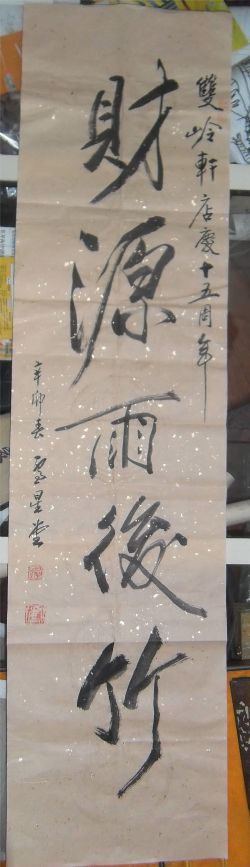 雙岭軒店慶十五周年
財源雨後竹
辛卯春